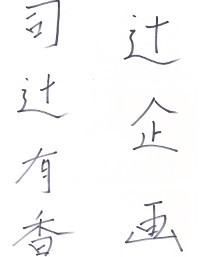 辻企画
司辻有香